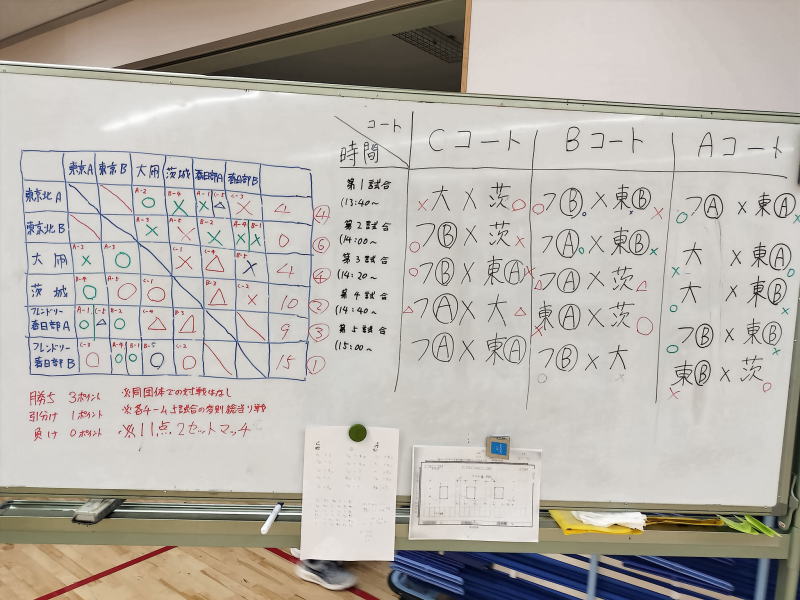 コート
時間
Cコート Bコート Aコート
東京A 東京B 大用 茨城 春日部A 春日部B
東京北A A-2 ○ B-4 × A-1 × C-5 △ C-3 × 4 ④
東京北B A-3 × A-5 × B-2 × A-4 × B-1 × 0 ⑥
大用 A-2 × A-3 ○ C-1 × C-4 △ B-5 × 4 ④
茨城 B-4 ○ A-5 ○ C-1 ○ B-3 △ C-2 × 10 ②
フレンドリー
春日部A A-1 ○ C-5 △ B-2 ○ C-4 △ B-3 △ 9 ③
フレンドリー
春日部B C-3 ○ A-4 ○ B-1 ○ B-5 ○ C-2 ○ 15 ①
第1試合
(13:40~
大×茨 フⒷ×東Ⓑ フⒶ×東Ⓐ
第2試合
(14:00~
フⒷ×茨 フⒶ×東Ⓑ 大×東Ⓐ
第3試合
(14:20~
フⒷ×東Ⓐ フⒶ×茨 大×東Ⓑ
第4試合
(14:40~
フⒶ×大 東Ⓐ×茨 フⒷ×東Ⓑ
第5試合
(15:00~
フⒶ×東Ⓐ フⒷ×大 東Ⓑ×茨
勝ち 3ポイント
引分け 1ポイント
負け 0ポイント
※同団体での対戦はなし
※各チーム5試合の変則総当り戦
※11点2セットマッチ